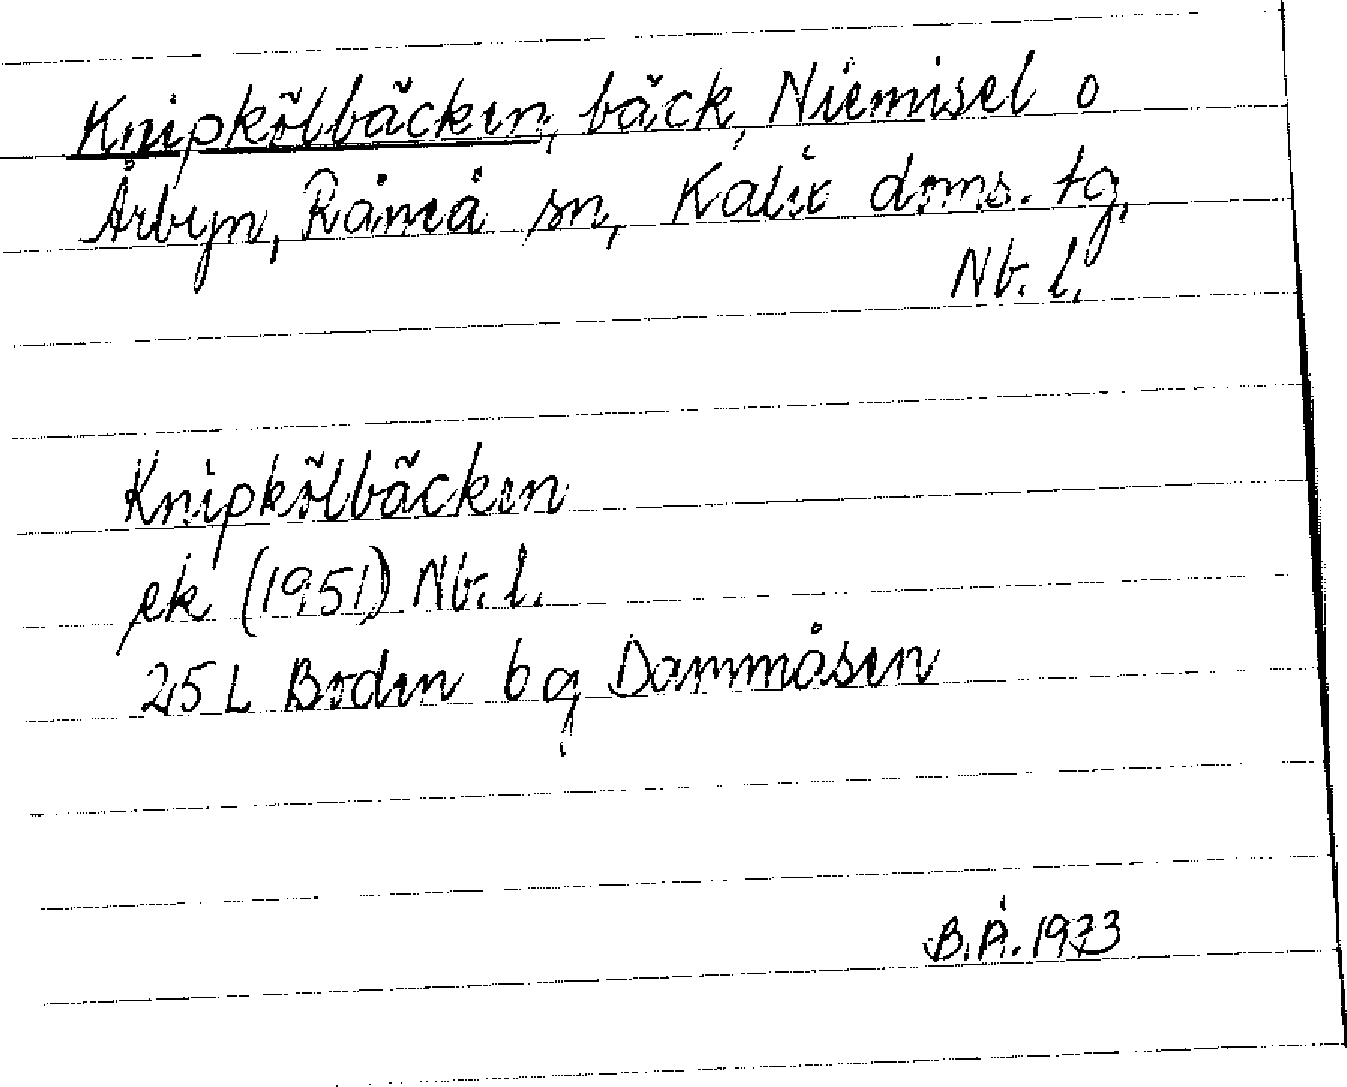 Knipkölbäcken, bäck, Niemisel o
Årbyn, Råneå sn, Kalix doms. tg,
Nb. l.
Knipkölbäcken
ek (1951) Nb. l.
25 L Boden 6 g Dammåsen
B.Å. 1973